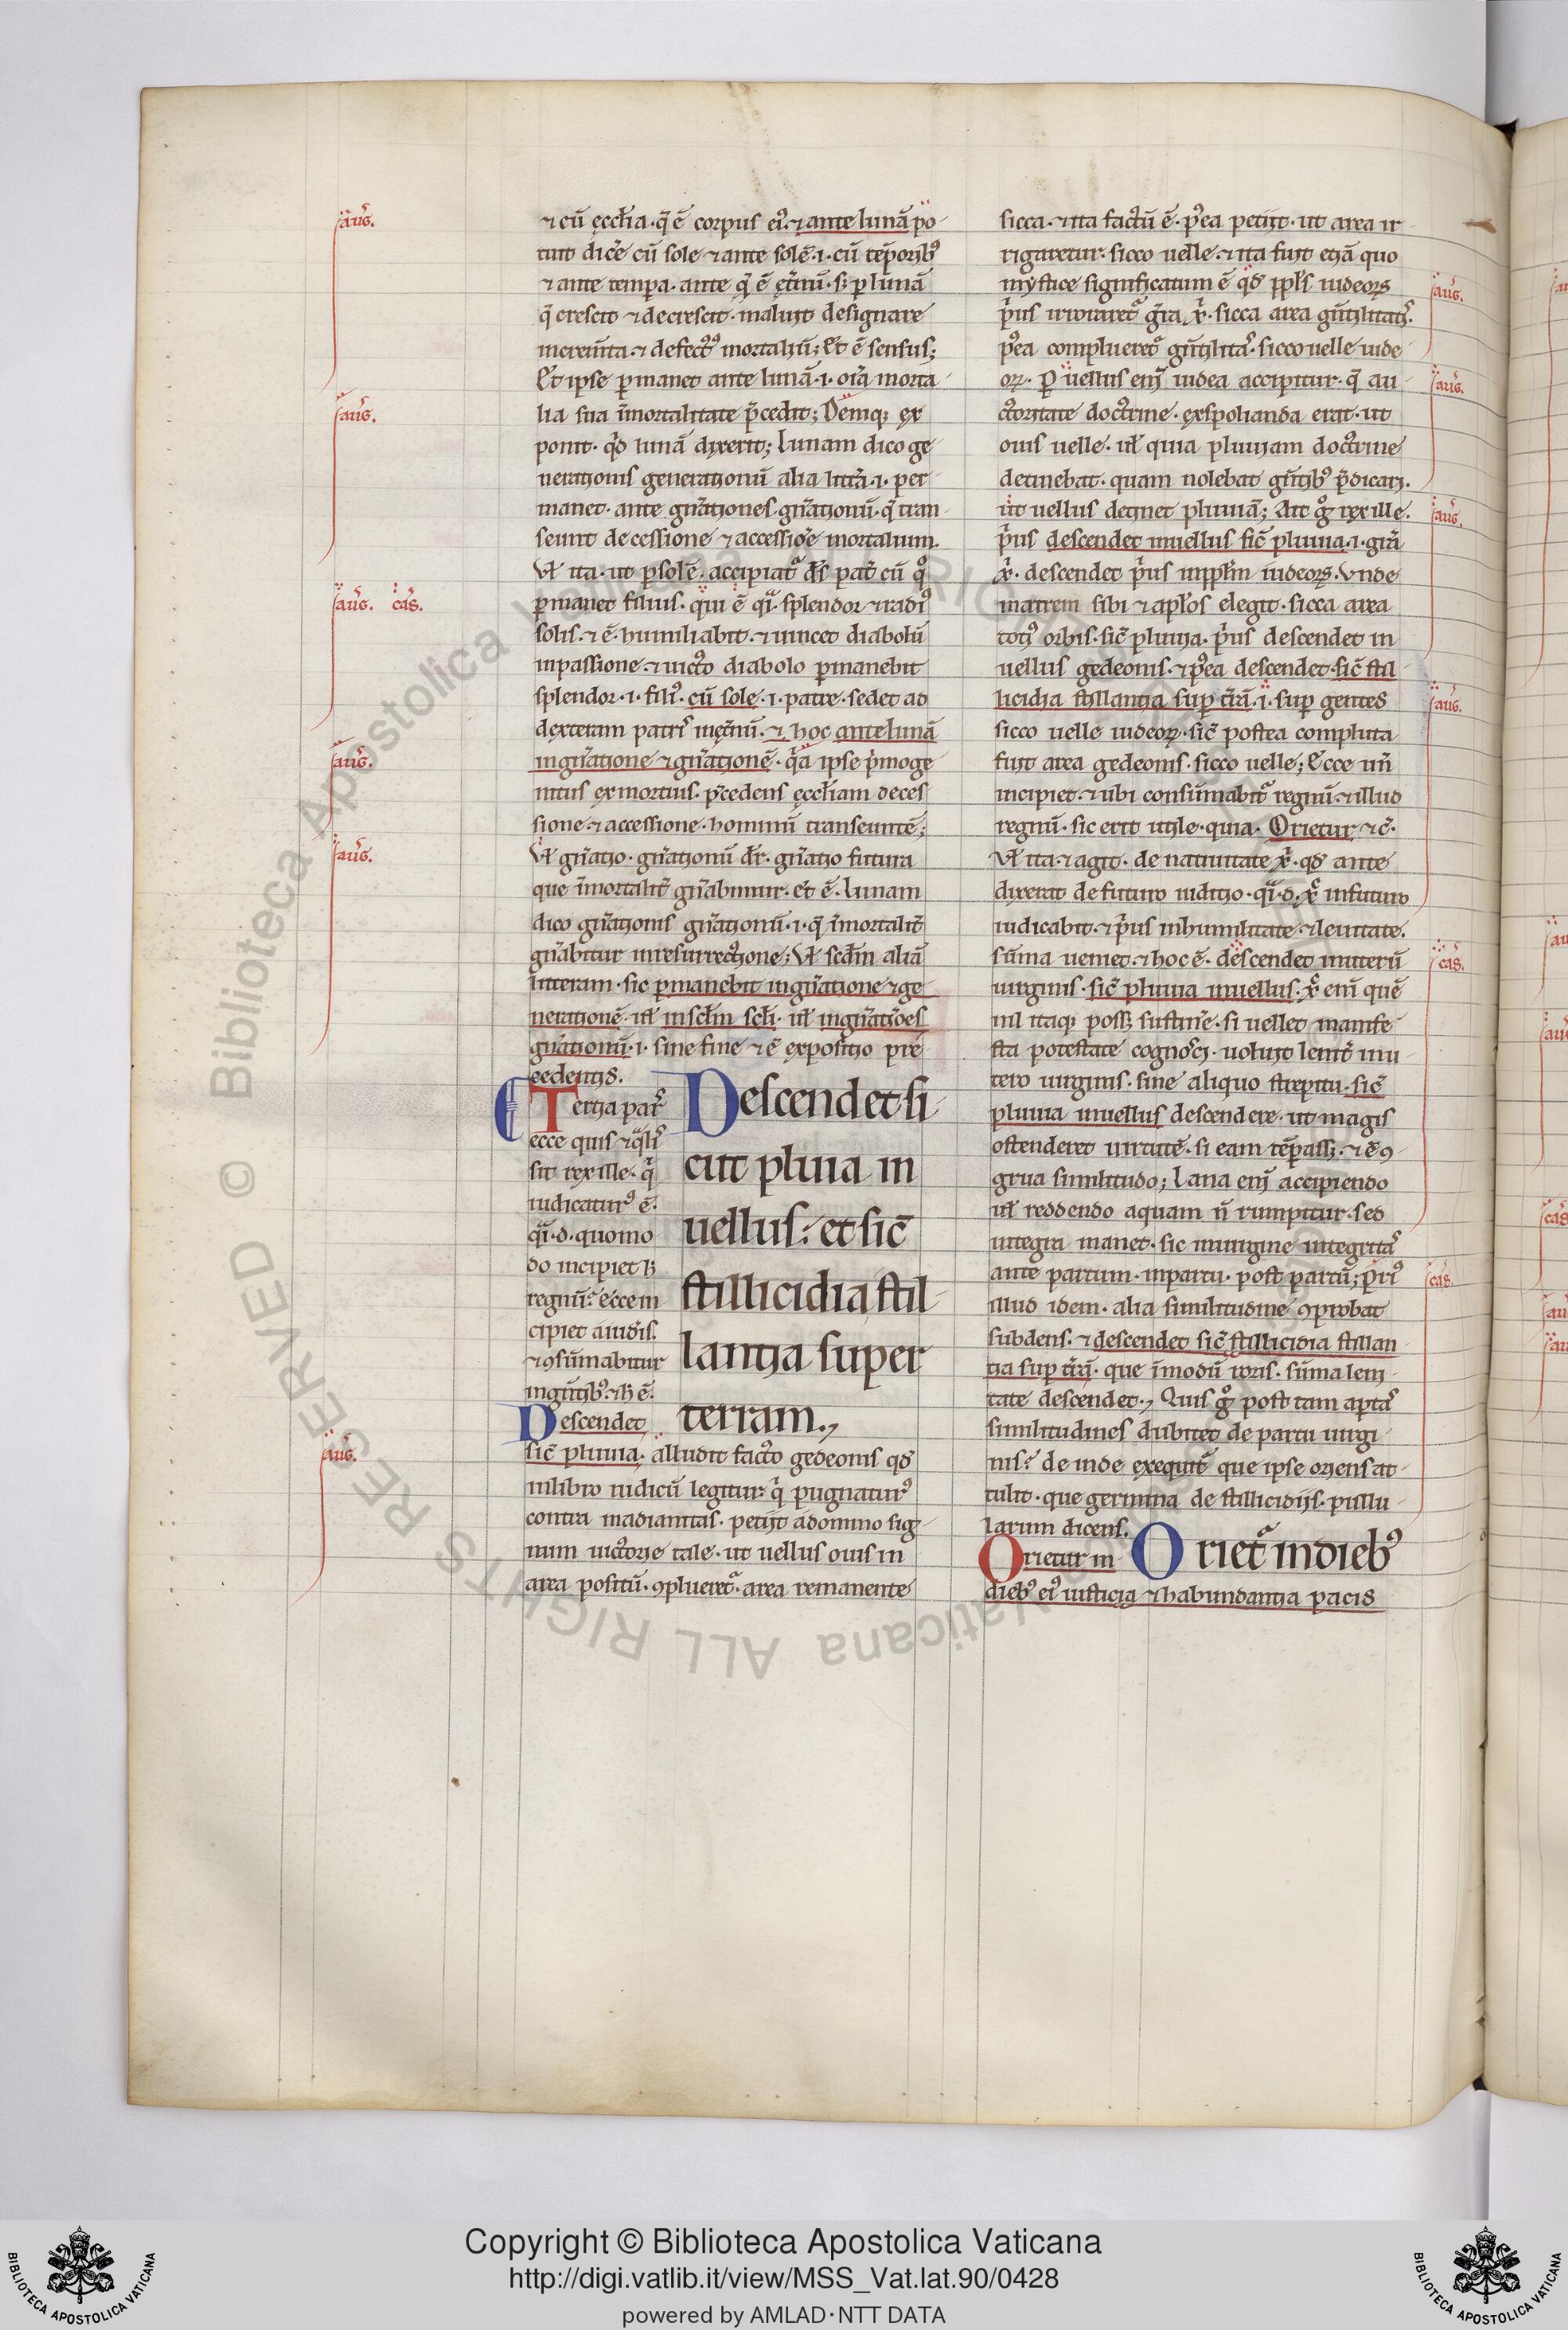 ⁊ cũ ęccl̃ia · q̃ ẽ corpus ei᷒ · ⁊ ante lunã po-
tuit dic̃e cũ sole ⁊ ante solẽ · i · cũ tẽporib᷒
⁊ ante tempa · ante q̃ ẽ ęt̃nũ · s; p lunã
q̃ crescit ⁊ decrescit · maluit designare
increm̃ta · ⁊ defect᷒ mortaliũ; Et ẽ sensus;
Et ipse pmanet ante lunã · i · oĩa morta-
lia sua ĩmortalitate p̃cedit; Deniq; ex
ponit · q̃d lunã dixerit; Lunam dico ge-
nerationis generationũ alia litt̃a · i · per-
manet · ante gñationes gñationũ · q̃ tran-
seunt decessione ⁊ accessiõe mortalium.
Vl̃ ita · ut p solẽ · accipiat᷑ d̃s pat̃ cũ q᷒
pmanet filius · qui ẽ q̃i splendor ⁊ radi᷒
solis · ⁊ ẽ · humiliabit · ⁊ uincet diabolũ
in passione · ⁊ uicto diabolo pmanebit
splendor · i · fili᷒ · cũ sole · i · patre · sedet ad
dexteram patris in ęt̃nũ · ⁊ hoc ante lunã
in gñatione ⁊ gñationẽ · q̃a ipse p̃moge
nitus ex mortuis · p̃cedens ęccl̃iam deces
sione · ⁊ accessione · hominũ transeuntẽ;
Vl̃ gñatio · gñationũ dr̃ · gñatio futura
que ĩmortalit̃ gñabimur · et ẽ · Lunam
dico gñationis gñationũ · i · q̃ ĩmortalit̃
gñabitur in resurrectione; Vl̃ scd̃m aliã
litteram · sic pmanebit in gñatione ⁊ ge
nerationẽ · ul̃ in scl̃m scl̃i · ul̃ in gñatiões
gñationũ · i · sine fine ⁊ ẽ expositio pre
cedentis.
Tertia pars
ecce quis ⁊ q̃lis
sit rex ille · q̃
iudicatur᷒ ẽ ·
q̃i · d · quomo
do incipiet h̃
regnũ? ecce in
cipiet a iudeis.
⁊ ꝯsũmabitur
in gñtib᷒ · ⁊ h̃ ẽ.
Descendet si-
cut pluia in
uellus? et sic̃
stillicidia stil-
lantia super
terram.,
Descendet
sic̃ pluuia · alludit facto gedeonis qd̃
in libro iudicũ legitur · q̃ pugnatur᷒
contra madianitas · petiit a domino sig-
num uictorie tale · ut uellus ouis in
area positũ · ꝯplueret᷑ · area remanente
sicca · ⁊ ita factũ ẽ · p᷒ea petiit · ut area ir-
rigaretur · sicco uelle · ⁊ ita fuit etiã quo
mystice significatum ẽ qd̃ ppl̃s iudeoꝝ
p̃us irroraret᷑ g̃ra x̃ · sicca area gñtilitatis.
p᷒ea complueret᷑ gñtilitas · sicco uelle iude
oꝝ · P uellus enĩ iudea accipitur · q̃ au-
ctoritate doctrine · expolianda erat · ut
ouis uelle · ul̃ quia pluuiam doctrine
detinebat · quam nolebat gñtib᷒ p̃dicari.
ut uellus detinet pluuiã; Ait g᷒ rex ille.
p̃us descendet in uellus sic̃ pluuia · i · grã
x̃ · descendet p̃us in ppl̃m iudeoꝝ · Vnde
matrem sibi ⁊ apl̃os elegit · sicca area
toti᷒ orbis · sic̃ pluuia · p̃us descendet in
uellus gedeonis · ⁊ p᷒ea descendet · sic̃ stil-
licidia stillantia sup t̃rã · i · sup gentes
sicco uelle iudeoꝝ · sic̃ postea compluta
fuit area gedeonis · sicco uelle; Ecce uñ
incipiet · ⁊ ubi consũmabit᷑ regnũ · ⁊ illud
regnũ · sic erit utile · quia · Orietur ⁊c̃ ·
Vl̃ ita · ⁊ agit · de natiuitate x̃ · qd̃ ante
dixerat de futuro iuditio · q̃i · d · x̃c in futuro
iudicabit · ⁊ p̃us in humilitate · ⁊ leuitate.
sũma ueniet · ⁊ hoc ẽ · descendet in uterũ
uirginis · sic̃ pluuia in uellus · x̃c enĩ quẽ
nil itaq; poss; sustinẽ · si uellet manife
sta potestate cognosci · uoluit lenit̃ in u-
tero uirginis · sine aliquo strepitu · sic̃
pluuia in uellus descendere · ut magis
ostenderet uirtutẽ · si eam tẽpass; · ⁊ ẽ ꝯ-
grua similitudo; Lana enĩ accipiendo
ul̃ reddendo aquam ñ rumpitur · sed
integra manet · sic in uirgine integritas
ante partum · in partu · post partũ; Pri᷒
illud idem · alia similitudine ꝯprobat
subdens · ⁊ descendet sic̃ stillicidia stillan-
tia sup t̃rã · que ĩ modũ roris · sũma leni-
tate descendet., Quis g᷒ post tam aptas
similitudines dubitet de partu uirgi-
nis? deinde exequit᷑ que ipse oriens at-
tulit · que germina de stillicidiis · pullu-
larum dicens.
Orietur in
Oriet᷑ in dieb᷒
dieb᷒ ei᷒ iusticia ⁊ habundantia pacis
aug.
aug.
aug. cas.
aug.
aug.
aug.
aug.
aug.
aug.
aug.
cas.
cas.
© Biblioteca Apostolica Vaticana ALL RIGHTS RESERVED
Copyright © Biblioteca Apostolica Vaticana
http://digi.vatlib.it/view/MSS_Vat.lat.90/0428
powered by AMLAD·NTT DATA
BIBLIOTECA APOSTOLICA VATICANA
BIBLIOTECA APOSTOLICA VATICANA